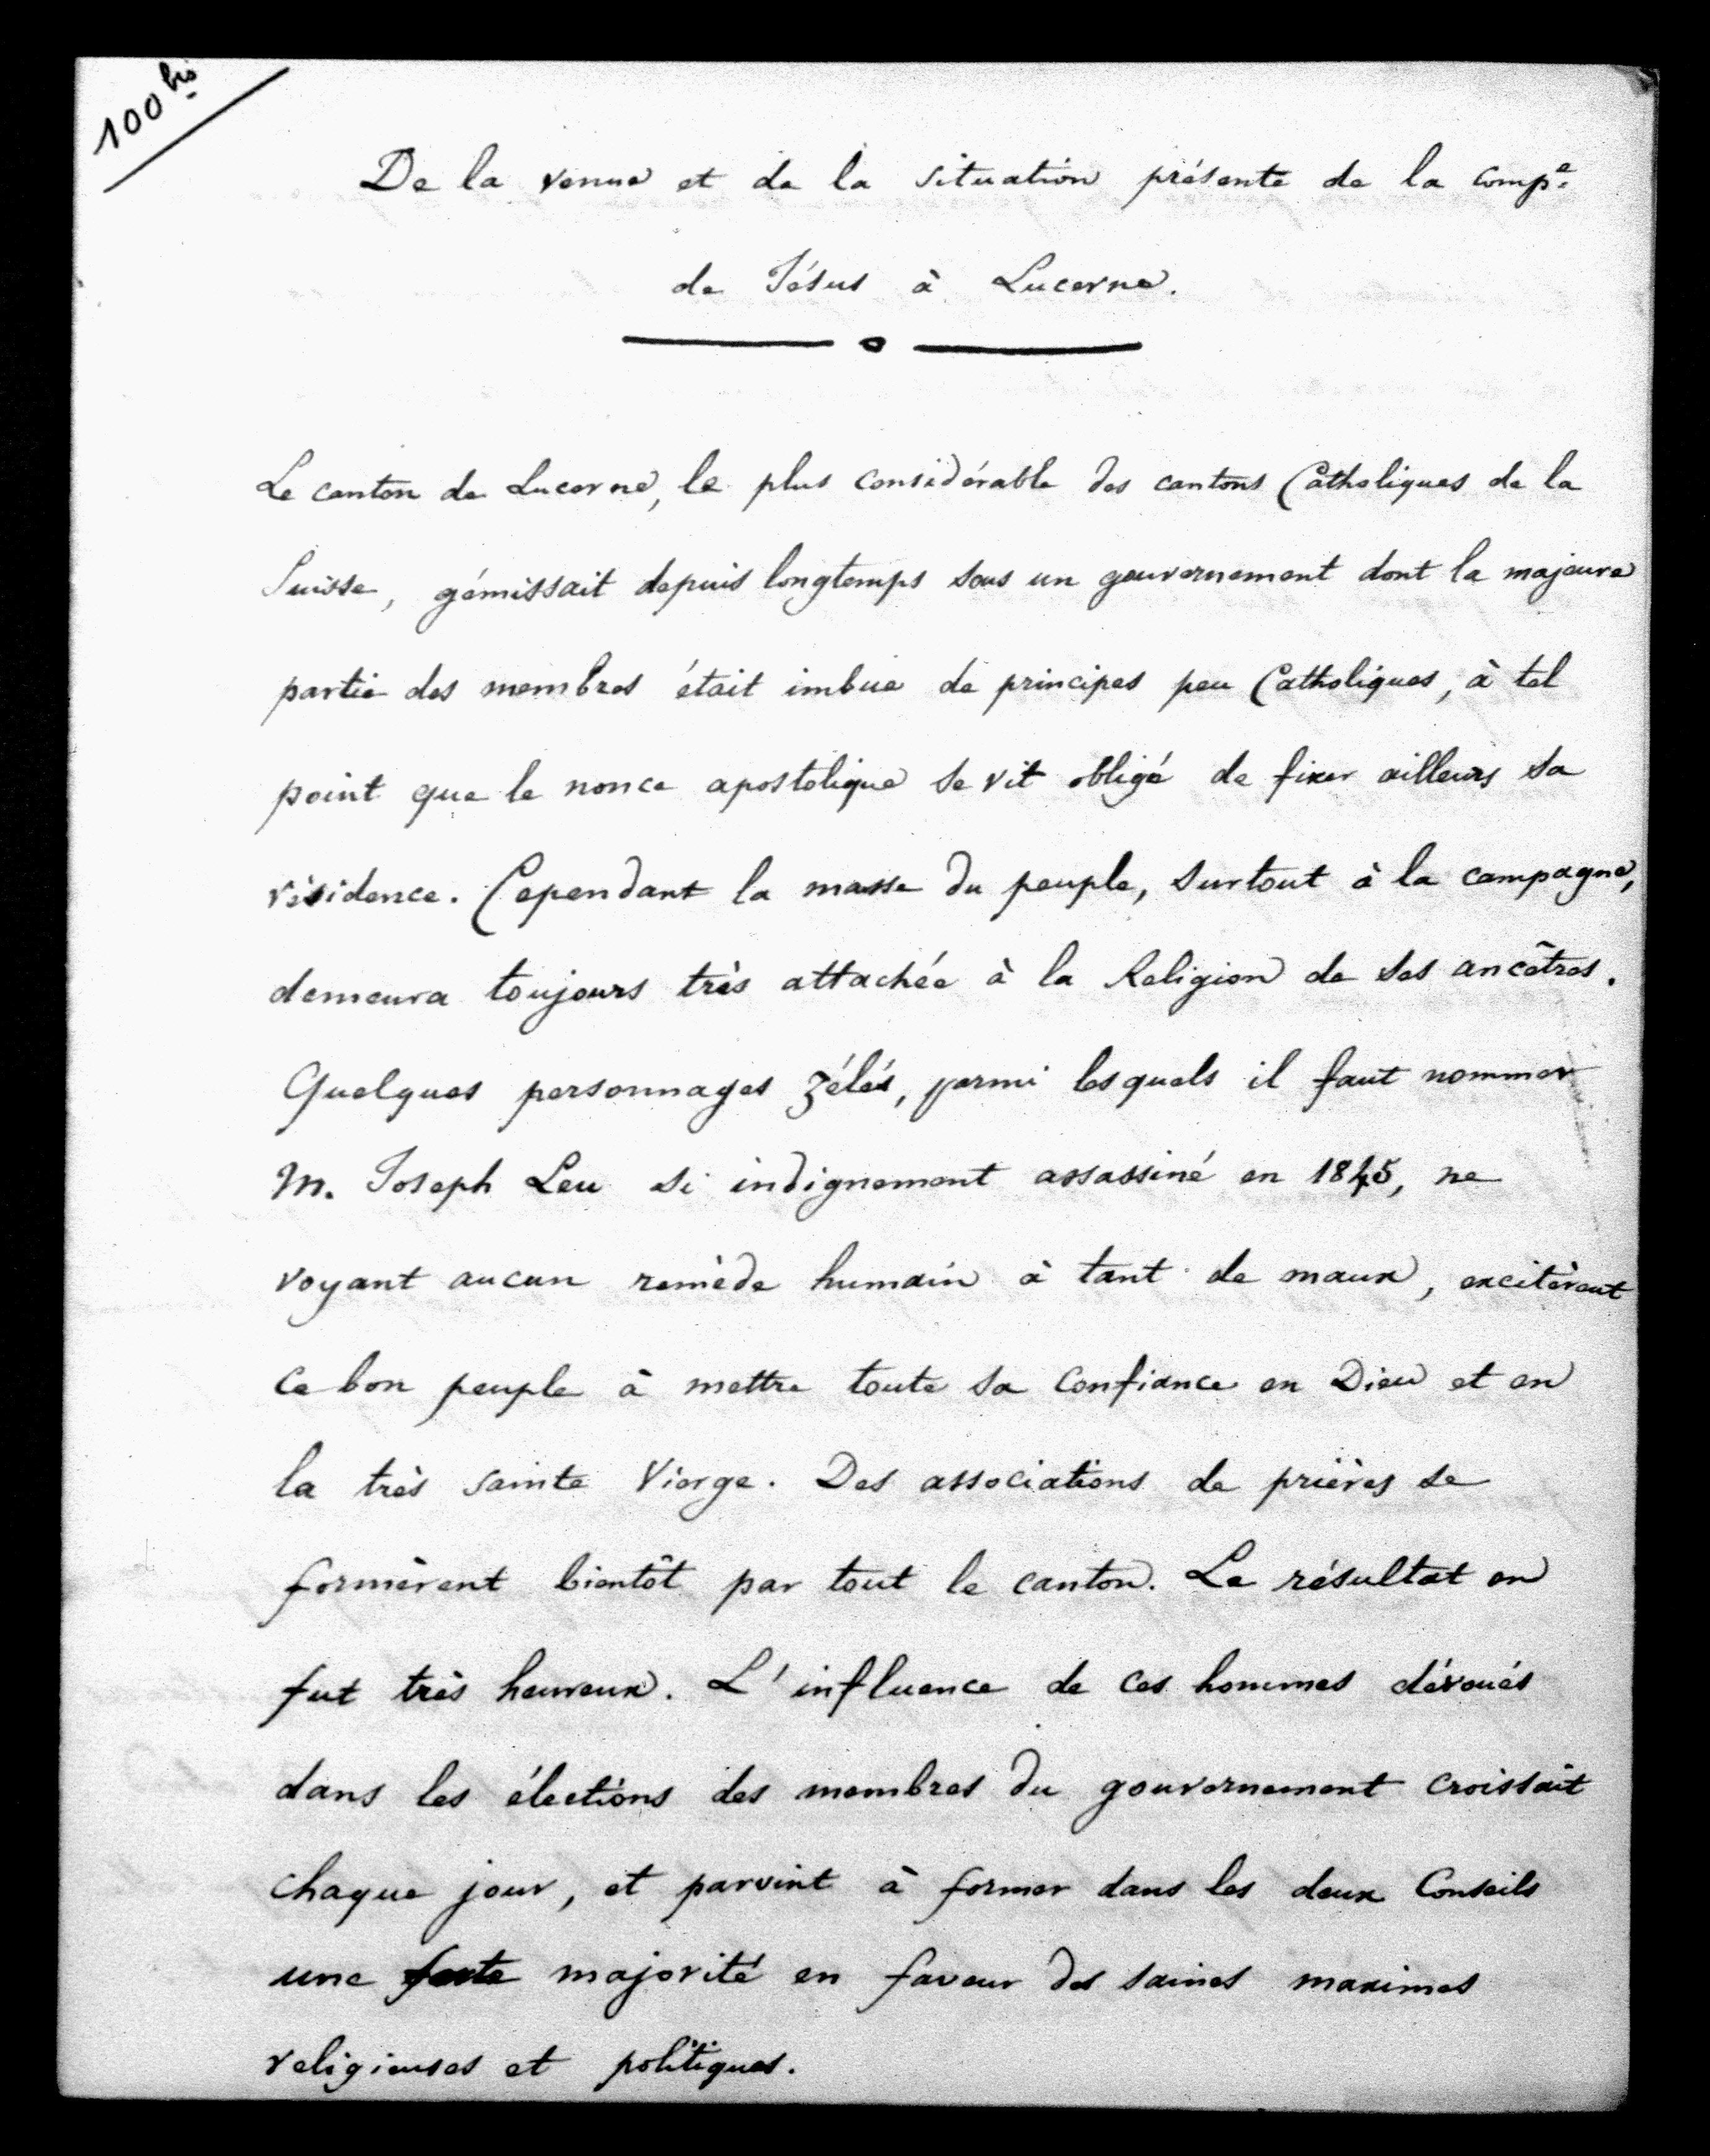 100 bis
De la venue et de la situation présente de la Compe.
de Jésus à Lucerne.
Le canton de Lucerne, le plus considérable des cantons Catholiques de la
Suisse, gémissait depuis longtemps sous un gouvernement dont la majeure
partie des membres était imbue de principes peu Catholiques, à tel
point que le nonce apostolique se vit obligé de fixer ailleurs sa
résidence. Cependant la masse du peuple, surtout à la campagne,
demeura toujours très attachée à la Religion de ses ancêtres.
Quelques personnages zélés, parmi lesquels il faut nommer
M. Joseph Leu si indignement assassiné en 1845, ne
voyant aucun remède humain à tant de maux, excitèrent
ce bon peuple à mettre toute sa confiance en Dieu et en
la très sainte Vierge. Des associations de prières se
formèrent bientôt par tout le canton. Le résultat en
fut très heureux. L'influence de ces hommes dévoués
dans les élections des membres du gouvernement croissait
chaque jour, et parvint à former dans les deux Conseils
une forte majorité en faveur des saines maximes
religieuses et politiques.